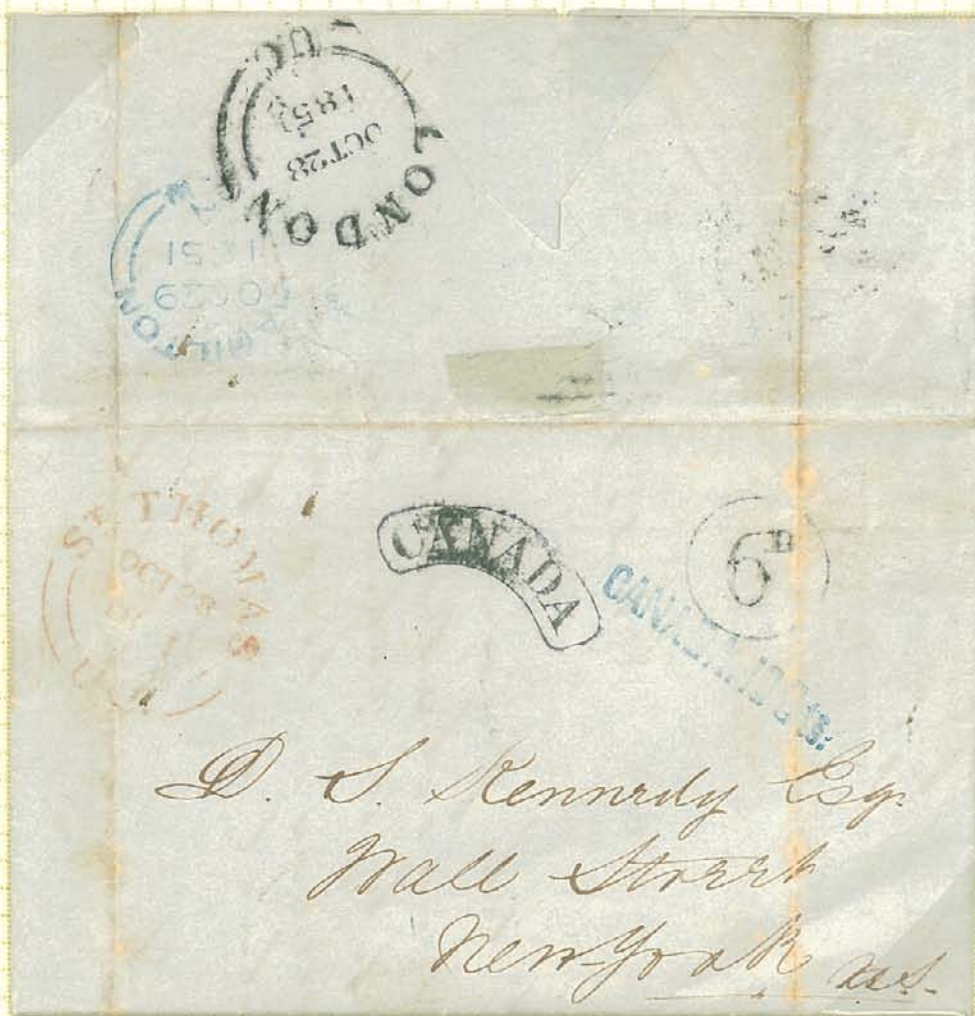 LONDON
OCT 28
1851
U.C.
HAMILTON
OC 29
51
ST THOMAS
OCT 28
CANADA
6D
CANADA 10 Cts.
D. S. Kennedy Esq.
Wall Street
New-York